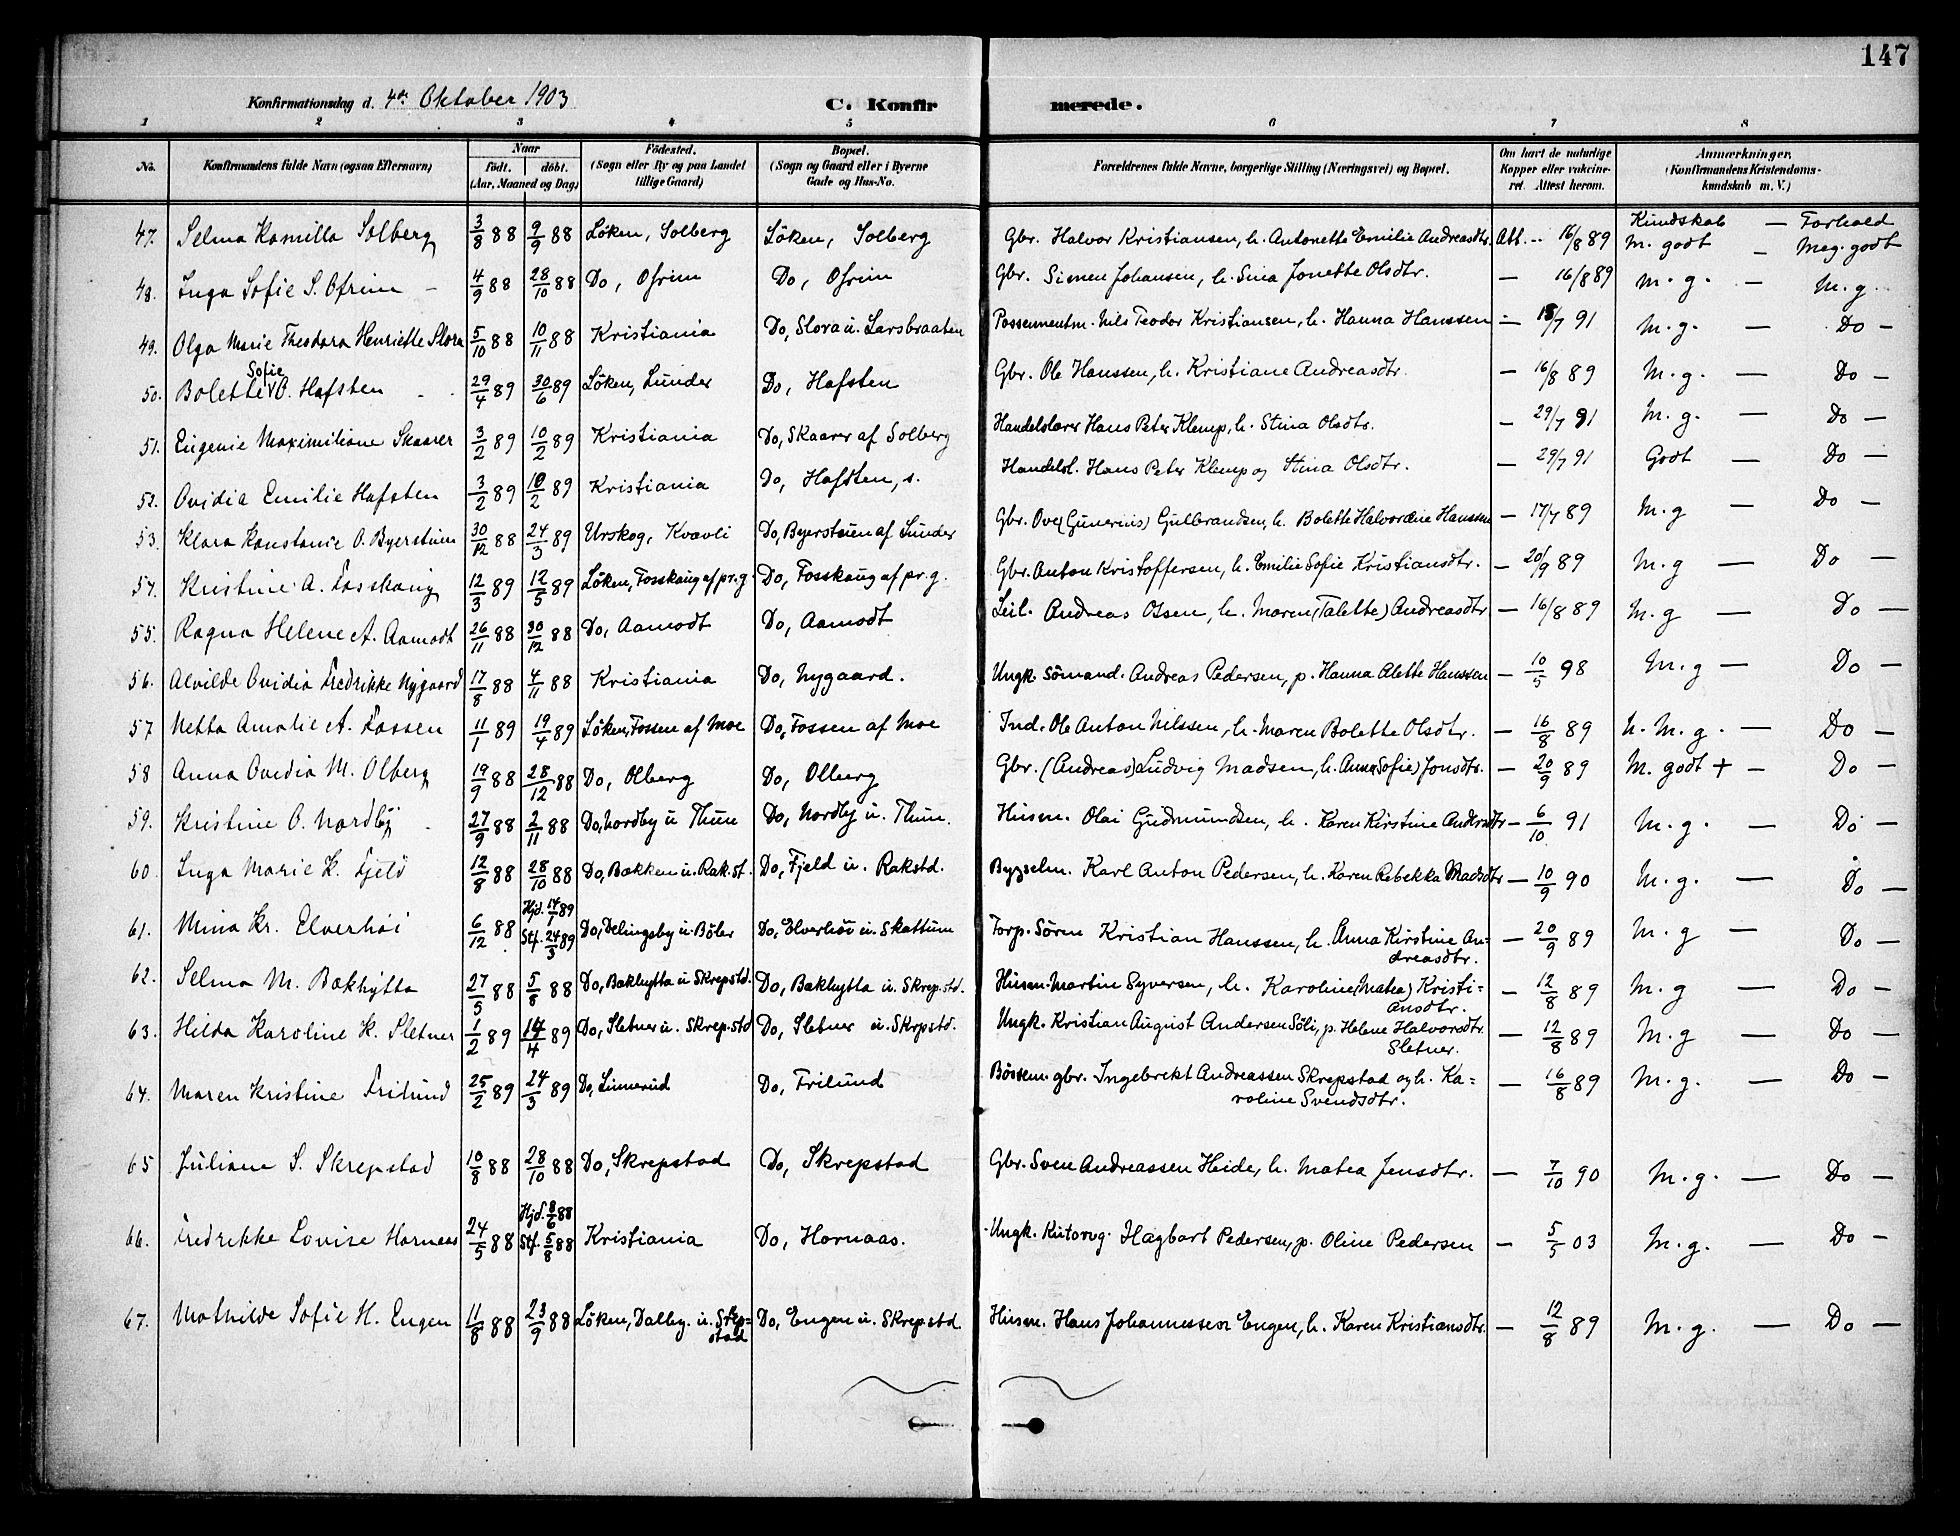 147
Konfirmationsdag d. 4de Oktober 1903
C. Konfirmerede.
1 2 3 4 5 6 7 8
No. Konfirmandens fulde Navn (ogsaa Efternavn) Naar födt. döbt. (Aar, Maaned og Dag) Födested. (Sogn eller By og paa Landet tillige Gaard) Bopæl. (Sogn og Gaard eller i Byerne Gade og Hus-No. Forældrenes fulde Navne, borgerlige Stilling (Næringsvei) og Bopæl. Om havt de naturlige Kopper eller vakcineret. Attest herom. Anmærkninger. (Konfirmandens Kristendomskundskab m. V.)
Kundskab — Forhold
47. Selma Kamilla Solberg 3/8 88 9/9 88 Löken, Solberg Löken, Solberg Gbr. Halvor Kristiansen, h. Antonette Emilie Andreasdtr. Att. - 16/8 89 M. godt - Meg. godt
48. Inga Sofie S. Ofrim - 4/9 88 28/10 88 Do, Ofrim Do, Ofrim Gbr. Simen Johansen, h. Sina Jonette Olsdtr. — 16/8 89 M. g. — M. g.
49. Olga Marie Theodora Henriette Slora 5/10 88 10/11 88 Kristiania Do, Slora u. Larsbraaten Possementm. Nils Teodor Kristiansen, h. Hanna Hanssen — 15/7 91 M. g. — Do —
50. Bolette Sofie O. Hafsten 29/4 89 30/6 89 Löken, Lunder Do, Hafsten Gbr. Ole Hanssen, h. Kristiane Andreasdtr. — 16/8 89 M. g. — Do —
51. Eugenie Maximiliane Skaarer 3/2 89 10/2 89 Kristiania Do, Skaarer af Solberg Handelslærer Hans Peter Klemp, h. Stina Olsdtr. — 29/7 91 M. g. — Do —
52. Ovidia Emilie Hafsten 3/2 89 10/2 89 Kristiania Do, Hafsten, s. Handelsl. Hans Peter Klemp og Stina Olsdtr. — 29/7 91 Godt — Do —
53. Klara Konstanse O. Byerstuen 30/12 88 24/3 89 Urskog, Kvævli Do, Byerstuen af Lunder Gbr. Ove (Gunerius) Gulbrandsen, h. Bolette Halvordine Hanssen — 17/7 89 M. g — Do —
54. Kristine A. Fosskaug 12/3 89 12/5 89 Löken, Fosskaug af pr.g. Do, Fosskaug af pr. g. Gbr. Anton Kristoffersen, h. Emilie Sofie Kristiansdtr. — 20/9 89 M. g — Do —
55. Ragna Helene A. Aamodt 26/11 88 30/12 88 Do, Aamodt Do, Aamodt Leil. Andreas Olsen, h. Maren (Talette) Andreasdtr — 16/8 89 M. g — Do —
56. Alvilde Ovidia Fredrikke Nygaard 17/8 88 4/11 88 Kristiania Do, Nygaard. Ungk. Sömand. Andreas Pedersen, p. Hanna Alette Hanssen — 10/5 98 M. g — Do —
57 Netta Amalie A. Fossen 11/1 89 19/4 89 Löken, Fossen af Moe Do, Fossen af Moe Ind. Ole Anton Nilssen, h. Maren Bolette Olsdtr. — 16/8 89 N. M. g. — Do —
58 Anna Ovidia M. Olberg 19/9 88 28/12 88 Do, Olberg Do, Olberg Gbr. (Andreas) Ludvig Madsen, h. Anna (Sofie) Jonsdtr. — 20/9 89 M. godt + — Do —
59. Kristine O. Nordby 27/9 88 2/11 88 Do, Nordby u Thune Do, Nordby u. Thune. Husm. Olai Gudmundsen, h. Karen Kirstine Andersdtr — 6/10 91 M. g. — Do —
60. Inga Marie K. Fjeld 12/8 88 28/10 88 Do, Bakken u. Rakst. Do, Fjeld u. Rakstd. Bygselm. Karl Anton Pedersen, h. Karen Rebekka Madsdtr — 10/9 90 M. g. — Do —
61. Mina Kr. Elverhöi 6/12 88 Hjd. 14/1 89 Stf. 24/3 89 Do, Delingsby u. Böler Do, Elverhöi u. Skattum Torp. Sören Kristian Hanssen, h. Anna Kirstine An=
dreasdtr. — 20/9 89 M. g — Do —
62. Selma M. Bakhytta 27/5 88 5/8 88 Do, Bakhytta u Skrepstd. Do, Bakhytta u. Skrepstd. Husm. Martin Syversen, h. Karoline (Matea) Kristi=
ansdtr. — 12/8 89 M. g — Do —
63. Hilda Karoline K. Sletner 1/2 89 14/4 89 Do, Sletner u. Skrepstd Do, Sletner u. Skrpstd. Ungk. Kristian August Andersen Söli, p. Helene Halvorsdtr.
Sletner. — 12/8 89 M. g — Do —
64. Maren Kristine Frilund 25/2 89 24/3 89 Do, Linnerud Do, Frilund Bössem. gbr. Ingebrekt Andreassen Skrepstad og h. Ka=
roline Svendsdtr. — 16/8 89 M. g. — Do —
65 Juliane S. Skrepstad 10/8 88 28/10 88 Do, Skrepstad Do, Skrepstad Gbr. Sven Andreassen Heide, h. Matea Jensdtr. — 7/10 90 M. g. — Do —
66. Fredrikke Lovise Hornaas 24/5 88 Hjd. 8/6 88 Stf. 5/8 88 Kristiania Do, Hornaas. Ungk. Kutorvg. Hagbart Pedersen, p. Oline Pedersen — 5/5 03 M. g. — Do —
67. Mathilde Sofie H. Engen 11/8 88 23/9 88 Löken, Dalby. u. Skrep=
stad Do, Engen u. Skrepstd. Husm. Hans Johannessen Engen, h. Karen Kristiansdtr. — 12/8 89 M. g. — Do —